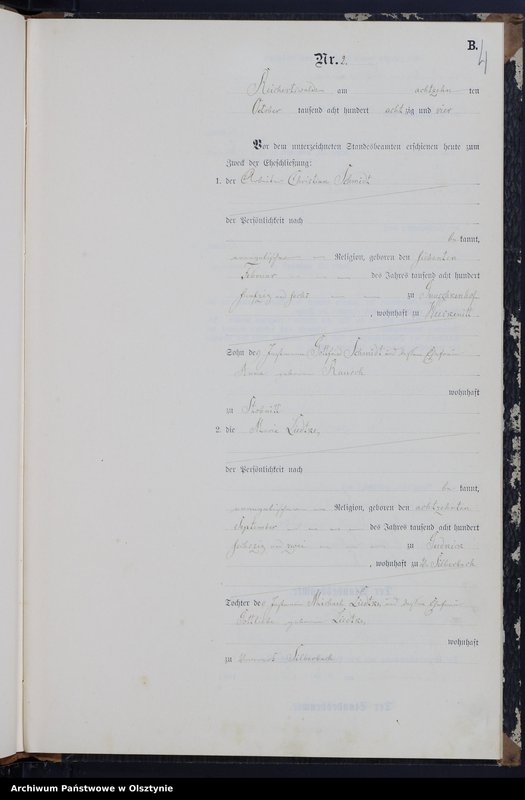 B.
4
Nr. 2.
Reichertswalde am achtzehn ten
October tausend acht hundert achtzig und vier
Vor dem unterzeichneten Standesbeamten erschienen heute zum
Zweck der Eheschließung:
1. der Arbeiter Christian Schmidt
der Persönlichkeit nach
be kannt,
evangelischer Religion, geboren den siebenten
Februar des Jahres tausend acht hundert
fünfzig und sechs zu
, wohnhaft zu
Sohn des Gottfried Schmidt und dessen Ehefrau
Anna geborenen Rausch
wohnhaft
zu
2. die Maria Liedtke,
der Persönlichkeit nach
be kannt,
evangelischer Religion, geboren den achtzehnten
September des Jahres tausend acht hundert
sechszig und zwei zu
, wohnhaft zu Silberbach
Tochter des Michael Liedtke und dessen Ehefrau
Gottliebe geborenen Liedtke,
wohnhaft
zu Silberbach
Archiwum Państwowe w Olsztynie